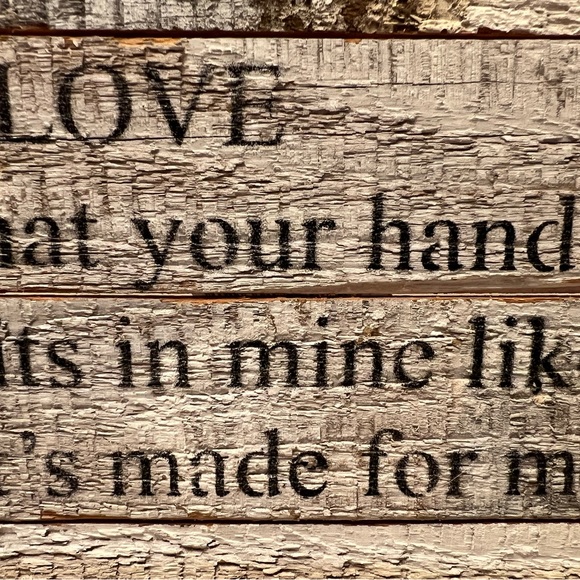 LOVE
hat your hand
its in mine lik
t's made for m